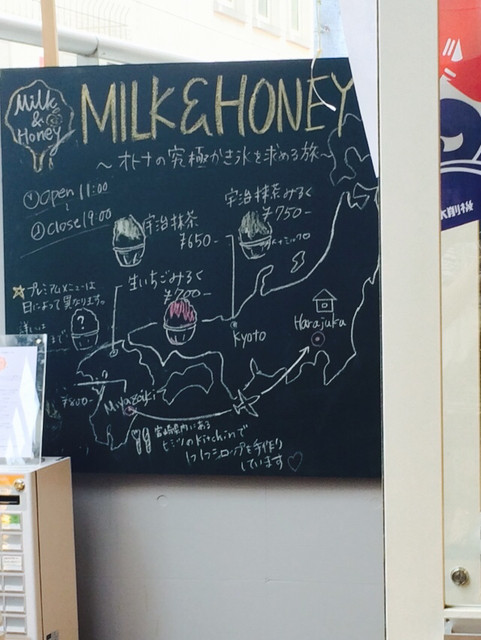 Milk
&
Honey
MILK&HONEY
〜オトナの究極かき氷を求める旅〜
Open 11:00
Close 19:00
宇治抹茶みるく
¥750-
宇治抹茶
¥650-
生いちごみるく
¥700-
プレミアムメニューは
日によって異なります。
?
まで
Kyoto
Harajuku
¥800-
Miyazaki
宮崎県内にある
ヒミツのkitchinで
1つ1つシロップを手作り
しています♡